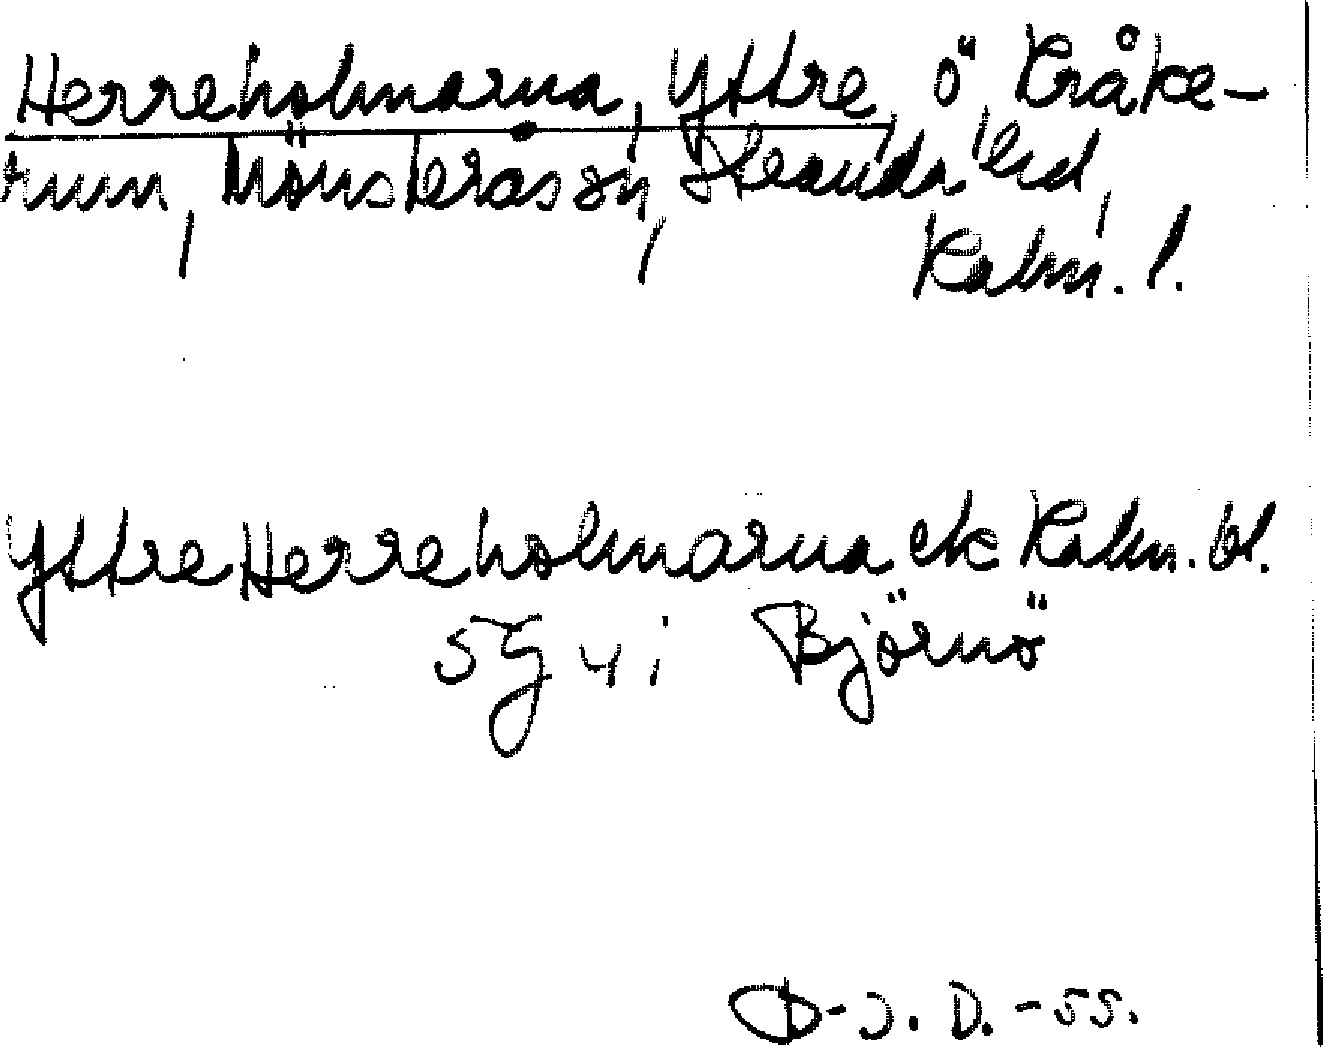 Herreholmarna, Yttre, ö, Kråke-
rum, Mönsterås sn, Stranda hd,
Kalm. l.
Yttre Herreholmarna ek Kalm. bl.
5g 4i Björnö
D-J. D. -55.